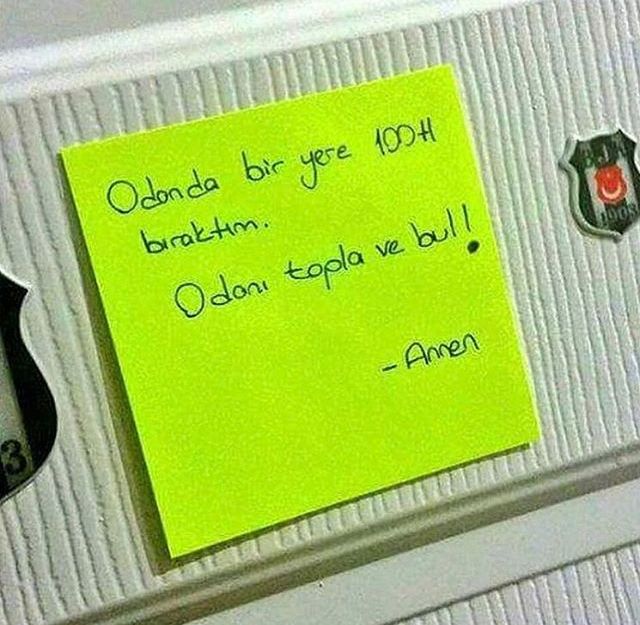 Odanda bir yere 100tl
bıraktım.
Odanı topla ve bul!
- Annen
3